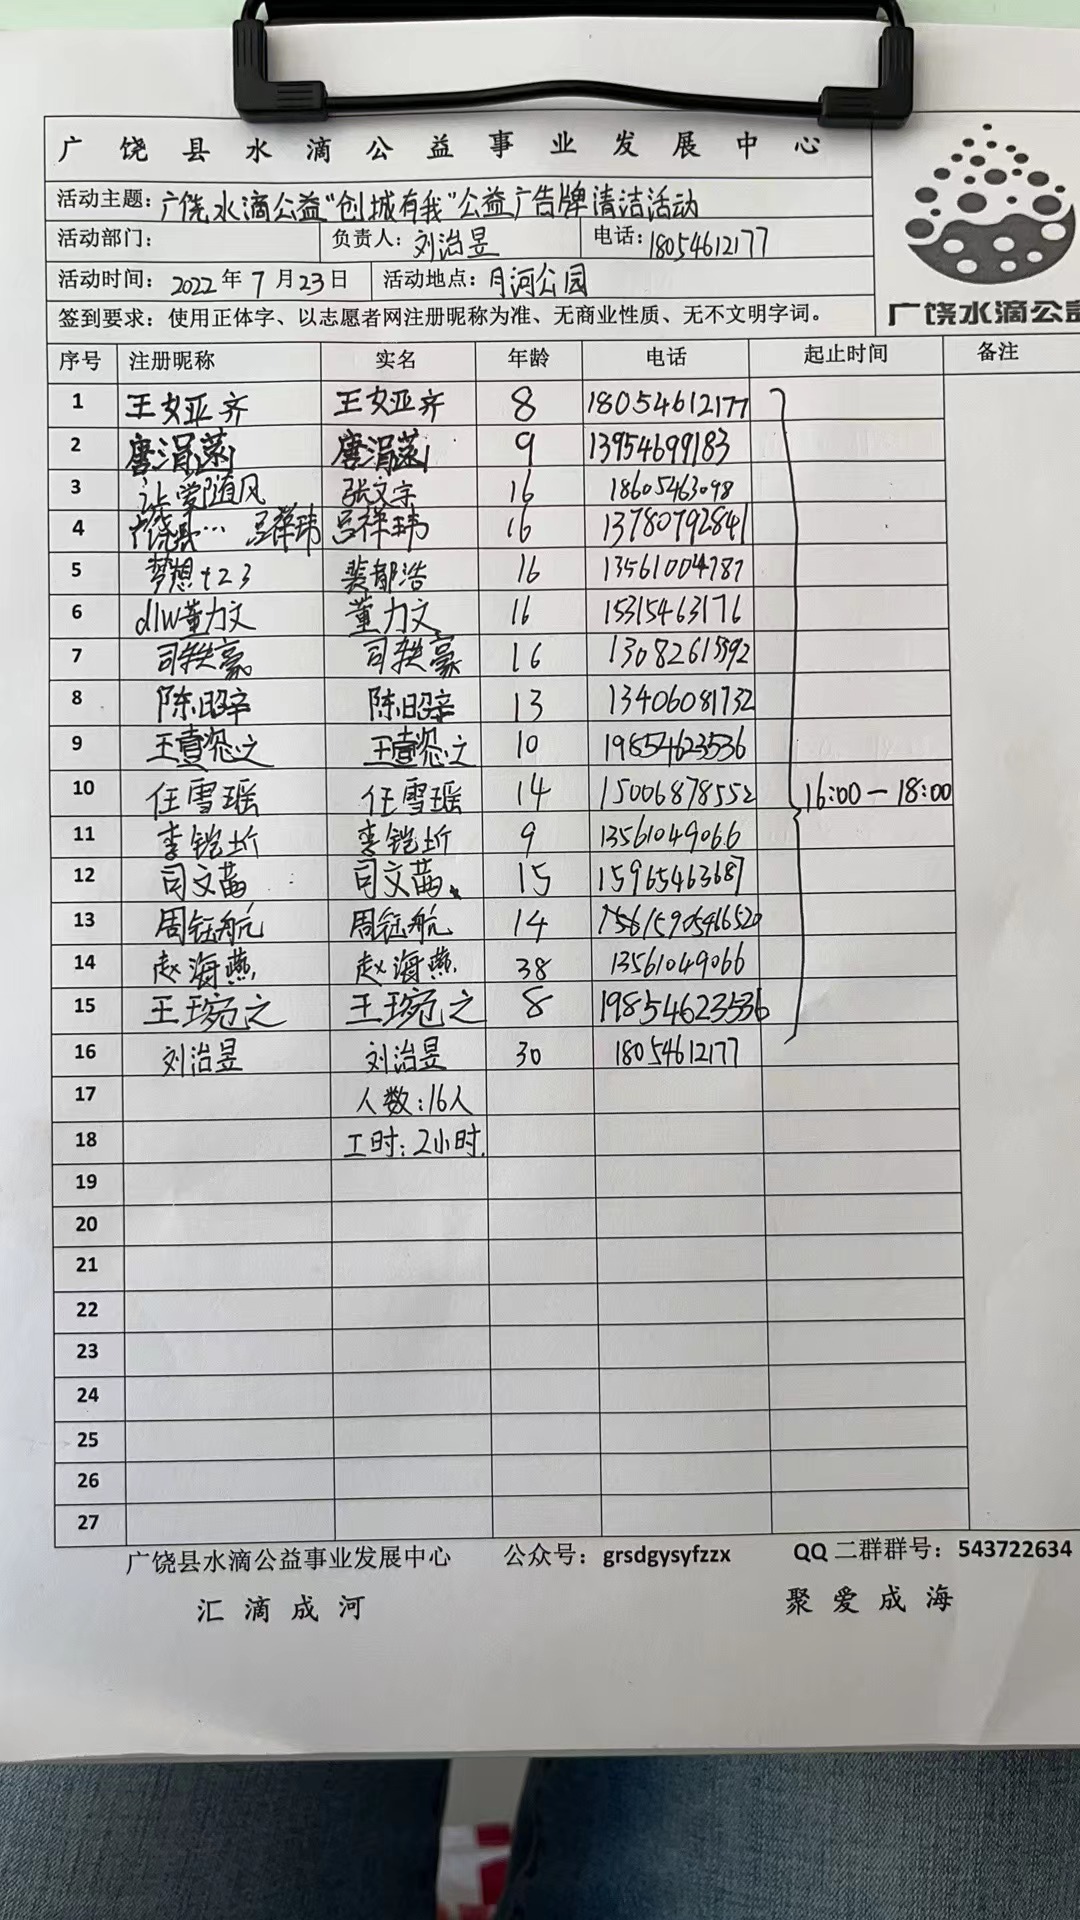 广饶县水滴公益事业发展中心
活动主题：广饶水滴公益"创城有我"公益广告牌清洁活动
活动部门： 负责人：刘治昱 电话：18054612177
活动时间：2022年7月23日 活动地点：月河公园
签到要求：使用正体字、以志愿者网注册昵称为准、无商业性质、无不文明字词。
广饶水滴公益
序号 注册昵称 实名 年龄 电话 起止时间 备注
1 王姣齐 王姣齐 8 18054612177
2 唐涓涵 唐涓涵 9 13954699183
3 让梦随风 张文宇 16 18605463098
4 广饶县… 吕祥玮 吕祥玮 16 13780792841
5 梦想+23 裴郁浩 16 13561004787
6 dlw董力文 董力文 16 15315463176
7 司轶豪 司轶豪 16
8 陈昭辛 陈昭辛 13 13406081732
9 王壹恣之 王壹恣之 10 19854623536
10 任雪瑶 任雪瑶 14 15006878552 16:00-18:00
11 李铠圻 李铠圻 9 13561049066
12 司文菡 司文菡 15 15965463687
13 周钰航 周钰航 14
14 赵海燕 赵海燕 38 13561049066
15 王琬之 王琬之 8 19854623536
16 刘治昱 刘治昱 30 18054612177
17 人数：16人
18 工时：2小时.
19
20
21
22
23
24
25
26
27
广饶县水滴公益事业发展中心 公众号：grsdgysyfzzx QQ二群群号：543722634
汇滴成河 聚爱成海